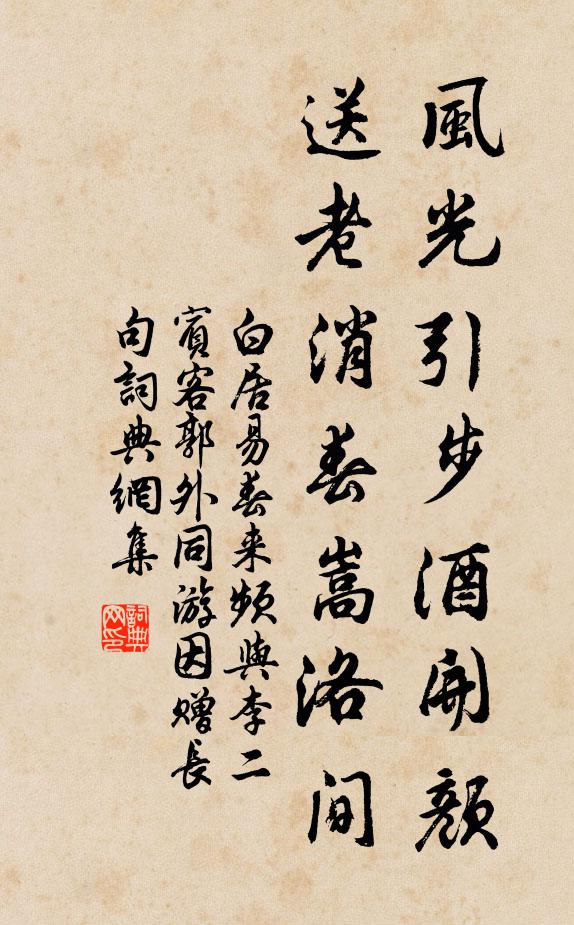 風光引步酒開顏
送老消春嵩洛間
白居易春来頻與李二
賓客郭外同游因赠長
句詞典網集
詞典
网印